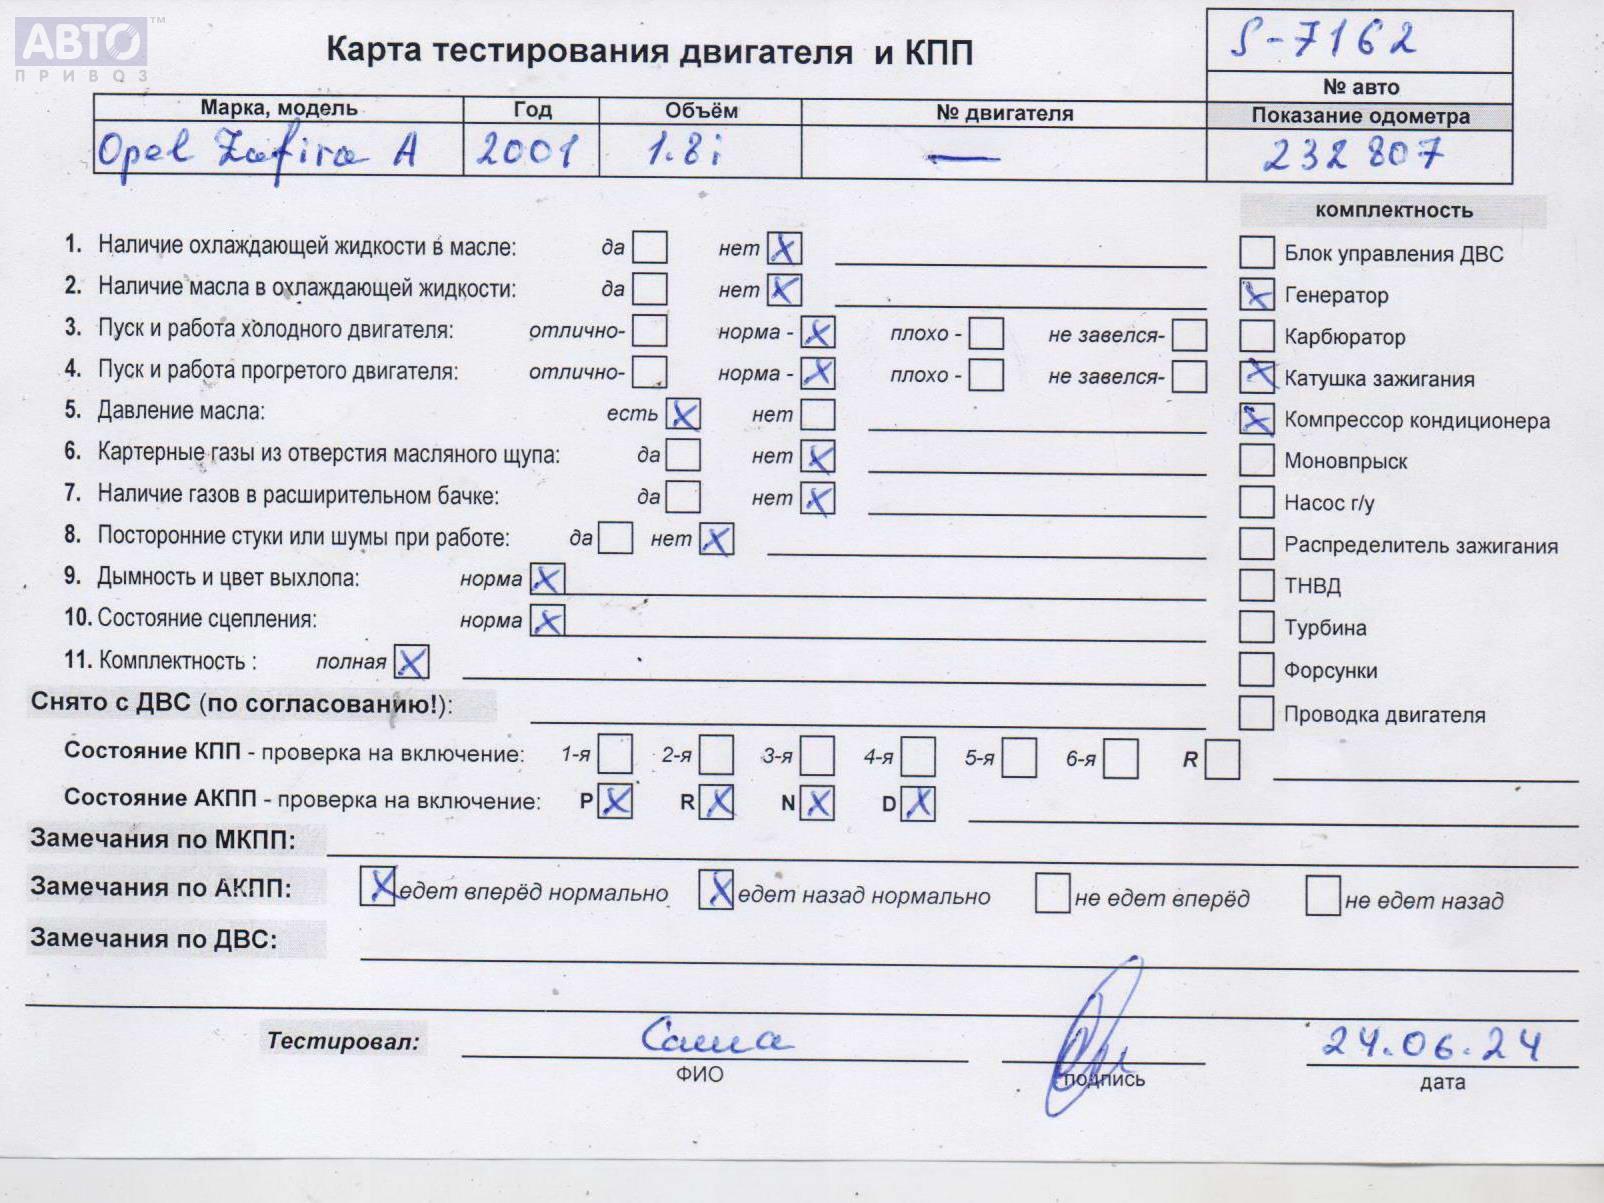 АВТО™
ПРИВОЗ
Карта тестирования двигателя и КПП
S-7162
№ авто
Марка, модель Год Объём № двигателя Показание одометра
Opel Zafira A 2001 1.8i — 232 807
комплектность
1. Наличие охлаждающей жидкости в масле: да нет X
Блок управления ДВС
2. Наличие масла в охлаждающей жидкости: да нет X
X Генератор
3. Пуск и работа холодного двигателя: отлично- норма - X плохо - не завелся-
Карбюратор
4. Пуск и работа прогретого двигателя: отлично- норма - X плохо - не завелся-
X Катушка зажигания
5. Давление масла: есть X нет
X Компрессор кондиционера
6. Картерные газы из отверстия масляного щупа: да нет X
Моновпрыск
7. Наличие газов в расширительном бачке: да нет X
Насос г/у
8. Посторонние стуки или шумы при работе: да нет X
Распределитель зажигания
9. Дымность и цвет выхлопа: норма X
ТНВД
10. Состояние сцепления: норма X
Турбина
11. Комплектность : полная X
Форсунки
Снято с ДВС (по согласованию!):
Проводка двигателя
Состояние КПП - проверка на включение: 1-я 2-я 3-я 4-я 5-я 6-я R
Состояние АКПП - проверка на включение: P X R X N X D X
Замечания по МКПП:
Замечания по АКПП: X едет вперёд нормально X едет назад нормально не едет вперёд не едет назад
Замечания по ДВС:
Тестировал: Саша 24.06.24
ФИО подпись дата